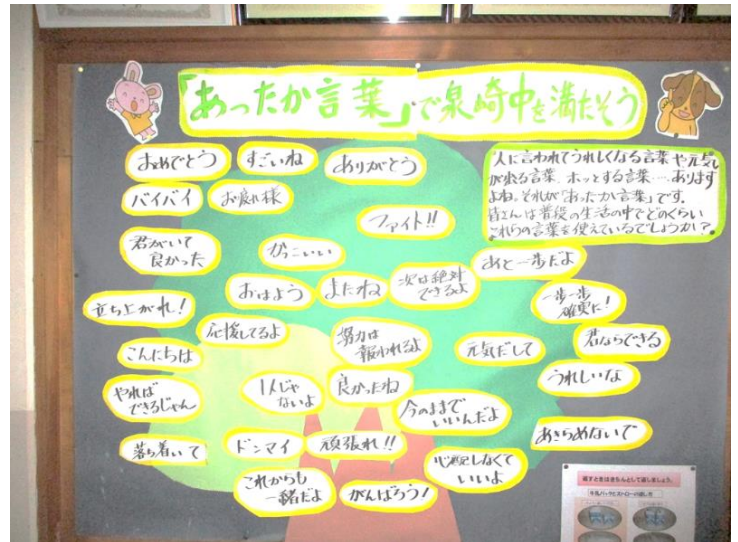 「あったか言葉」で泉崎中を満たそう
人に言われてうれしくなる言葉や元気
が出る言葉、ホッとする言葉…あります
よね。それが「あったか言葉」です。
皆さんは普段の生活の中でどのくらい
これらの言葉を使えているでしょうか？
おめでとう
すごいね
ありがとう
バイバイ
お疲れ様
ファイト!!
君がいて
良かった
かっこいい
あと一歩だよ
おはよう
またね
次は絶対
できるよ
一歩一歩
確実に!
立ち上がれ!
応援してるよ
努力は
報われるよ
元気だして
君ならできる
こんにちは
うれしいな
やれば
できるじゃん
1人じゃ
ないよ
良かったね
今のままで
いいんだよ
あきらめないで
落ち着いて
ドンマイ
頑張れ!!
心配しなくて
いいよ
これからも
一緒だよ
がんばろう!
返すときはきちんとして返しましょう。